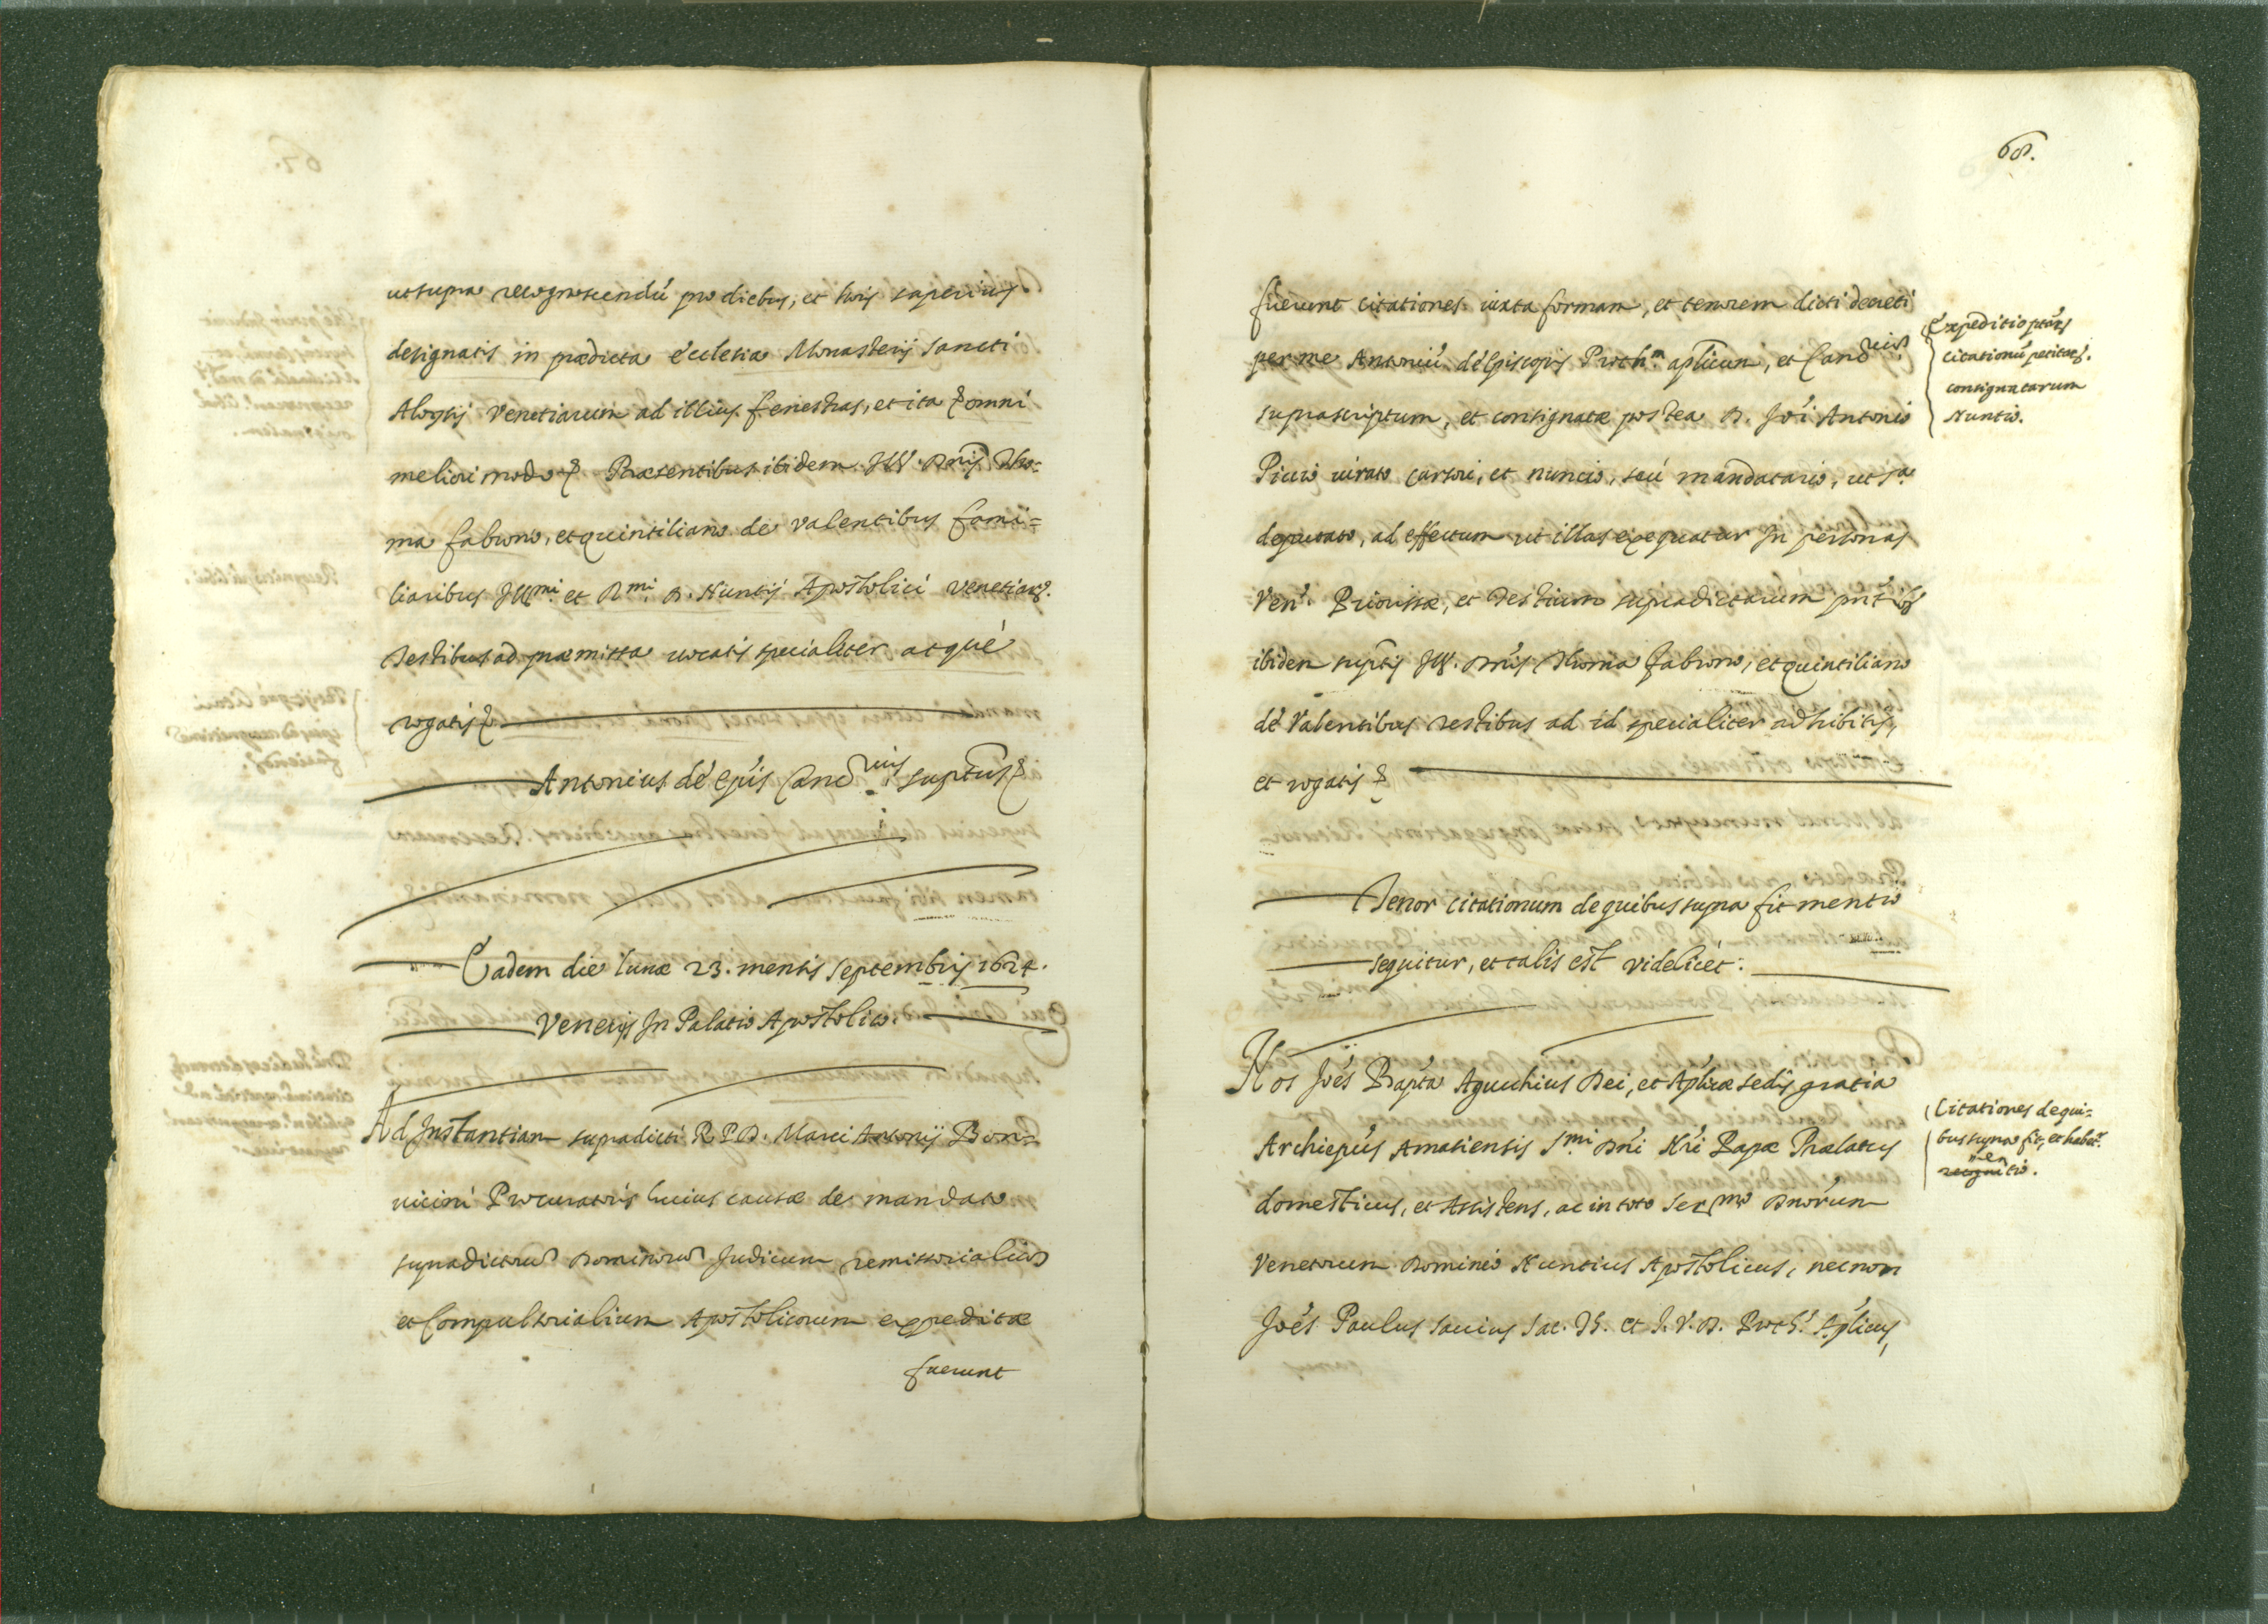 ut supra recognoscendũ pro diebus, et horis superius
designatis in prædicta ecclesia Monasterij Sancti
Aloysij Venetiarum ad illius fenestras, et ita ꝑ omni
meliori modo &. Præsentibus ibidem Ill. Dñis Tho=
ma fabrono, et quintiliano de Valentibus fami=
liaribus Illmi et Rmi D. Nuntij Apostolici Venetiarꝝ.
Testibus ad præmissa vocatis specialiter atquè
rogatis &.
Antonius de Epũs Cancrius supt̃us &
Eadem die lunæ 23. mensis Septembris 1624.
Venetijs In Palatio Apostolico.
Ad Instantiam supradicti R. P. D. Marci Antonij Bon=
uicini Procuratoris huius causæ de mandato
supradictorũ Dominorũ Judicum remissorialiũ
et Compulsorialium Apostolicorum expeditæ
fuerunt
68.
fuerunt citationes iuxta formam, et tenorem dicti decreti
per me Antoniũ de Episcopis Proth.m aplicum, et Cancrium
suprascriptum, et consignatæ postea D. Joi Antonio
Picio iurato cursori, et nuncio, seù mandatario, ut sa
deputato, ad effectum ut illas exequatur In personas
Ven. Priorissæ, et Testium supradictarum pñtibꝰ
ibidem supt̃is Ill. Dñis Thoma fabrono, et quintiliano
de Valentibus testibus ad id specialiter adhibitis,
et rogatis &
Expeditio ptarꝝ
citationũ petitarꝝ.
consignatarum
Nuntio.
Tenor citationum de quibus supra fit mentio
sequitur, et talis est videlicèt:
Nos Joẽs Bap̃ta Agucchius Dei, et Aplicæ sedis gratia
Archiepũs Amasiensis S.mi Dñi Nr̃i Papæ Prælatus
domesticus, et Assistens, ac in toto Sermo Dnorum
Venetorum Dominio Nuntius Apostolicus, necnon
Joẽs Paulus Sauius Sac. Th. et J. V. D. Proth. Aplicus,
Citationes de qui=
bus supra fit, et habetr
men
recognitio.